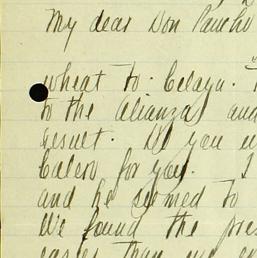 My dear Don Pancho
wheat to Celaya.
to the Alianza, and
result. Do you
Calero for you. I
and he seemed to
We found the pres
easier than